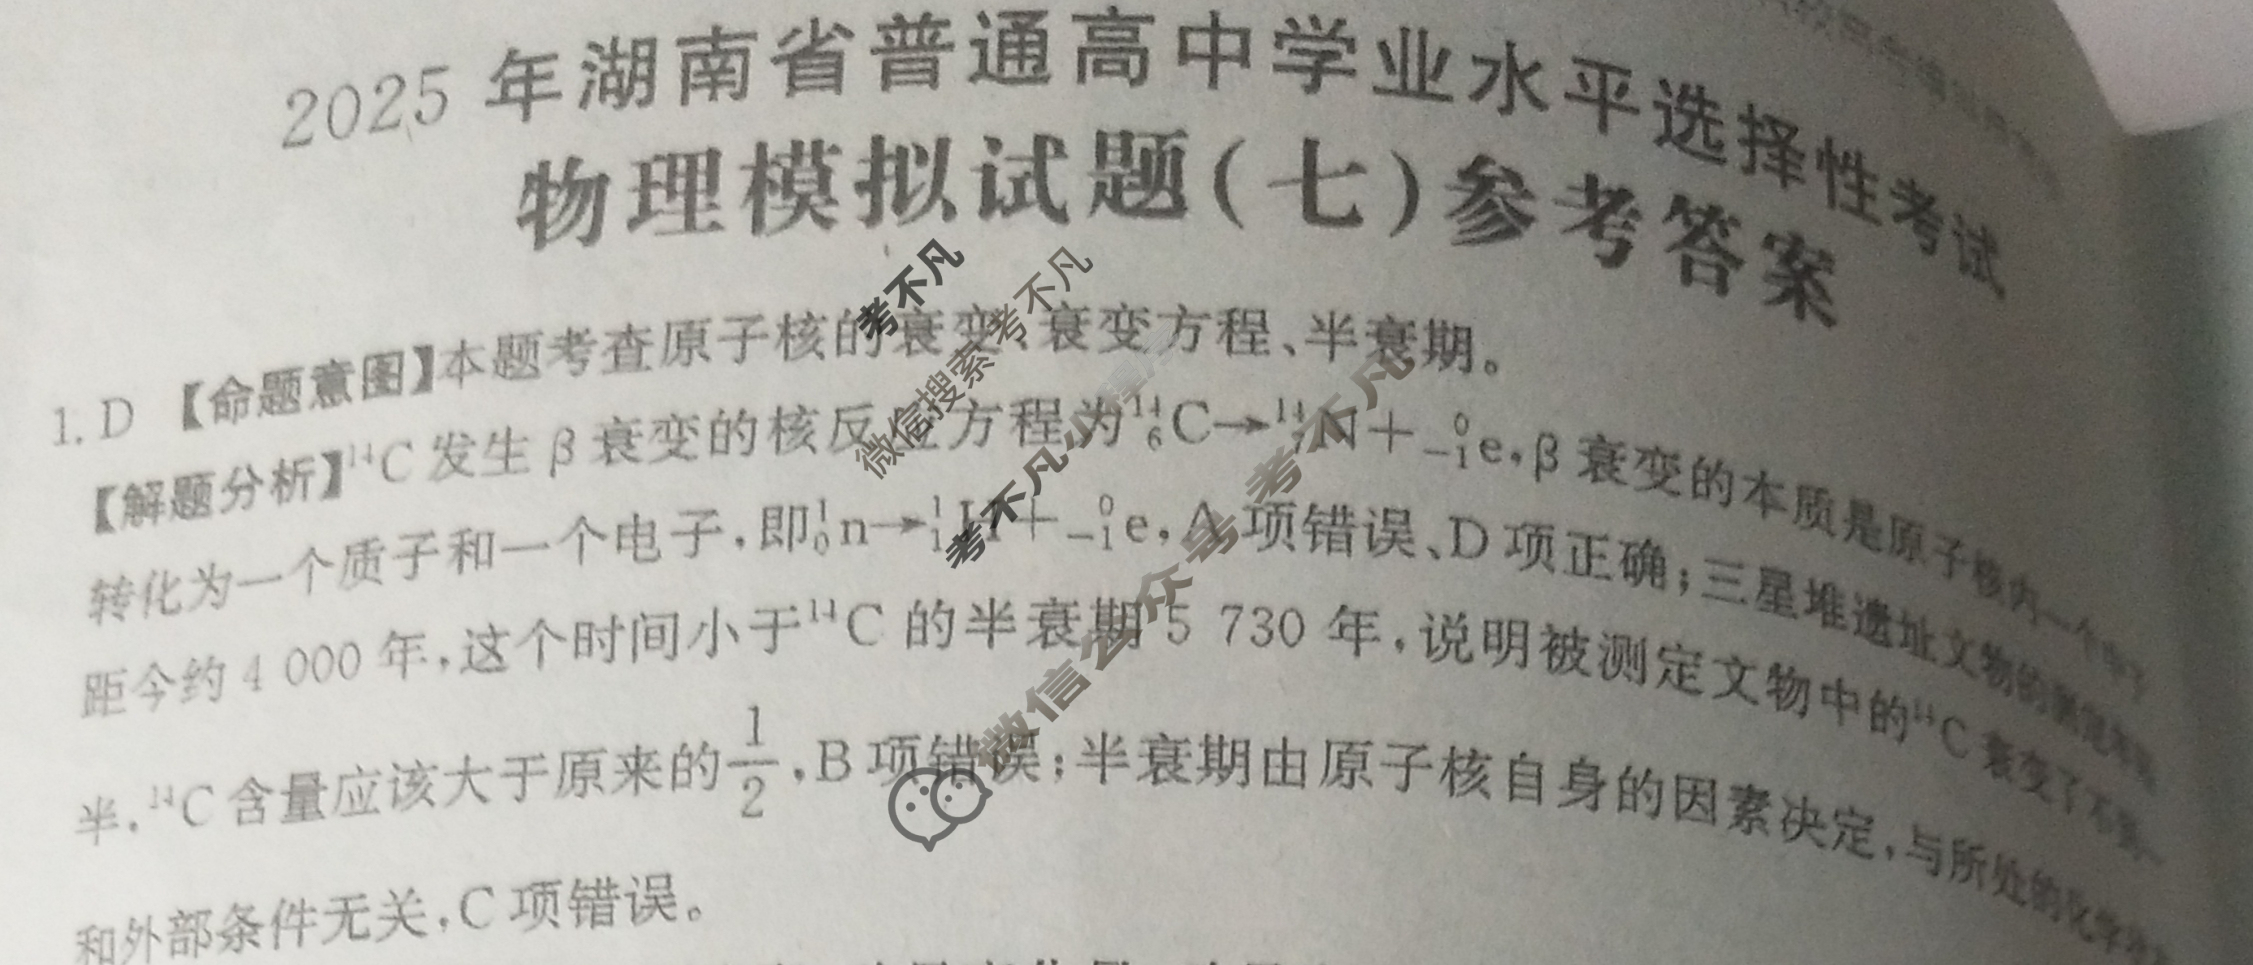 2025年湖南省普通高中学业水平选择性考试
物理模拟试题(七)参考答案
1. D 【命题意图】本题考查原子核的衰变、衰变方程、半衰期。
【解题分析】¹⁴C 发生 β 衰变的核反应方程为¹⁴₆C→¹⁴₇N+⁰₋₁e,β 衰变的本质是原子核内一个中子
转化为一个质子和一个电子,即¹₀n→¹₁H+⁰₋₁e,A 项错误、D 项正确;三星堆遗址文物的
距今约 4 000 年,这个时间小于¹⁴C 的半衰期 5 730 年,说明被测定文物中的¹⁴C 衰变了不到一
半,¹⁴C 含量应该大于原来的1/2,B 项错误;半衰期由原子核自身的因素决定,与所处的化学
和外部条件无关,C 项错误。
考不凡
微信搜索 考不凡
考不凡
微信公众号 考不凡